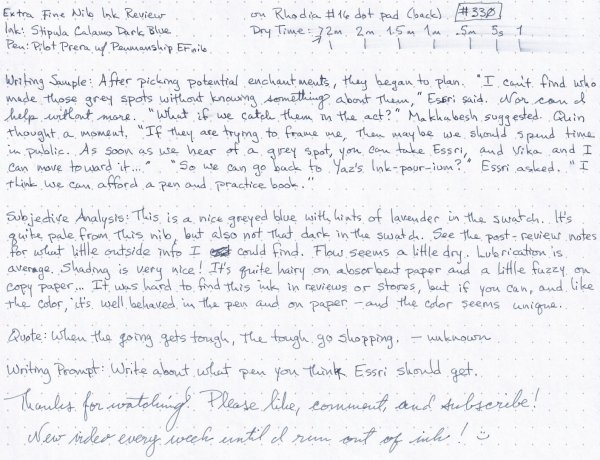 Extra Fine Nib Ink Review on Rhodia #16 dot pad (back) #330
Ink: Stipula Calamo Dark Blue Dry Time: >2m 2m 1.5m 1m .5m 5s 1
Pen: Pilot Prera w/ Penmanship EF nib
Writing Sample: After picking potential enchantments, they began to plan. "I can't find who
made those grey spots without knowing something about them," Essri said. Nor can I
help without more. "What if we catch them in the act?" Makhabesh suggested. Quin
thought a moment, "If they are trying to frame me, then maybe we should spend time
in public. As soon as we hear of a grey spot, you can take Essri, and Vika and I
can move toward it..." "So we can go back to Yaz's Ink-pour-ium?" Essri asked. "I
think we can afford a pen and practice book."
Subjective Analysis: This is a nice greyed blue with hints of lavender in the swatch. It's
quite pale from this nib, but also not that dark in the swatch. See the post-review notes
for what little outside info I could find. Flow seems a little dry. Lubrication is
average. Shading is very nice! It's quite hairy on absorbent paper and a little fuzzy on
copy paper... It was hard to find this ink in reviews or stores, but if you can, and like
the color, it's well behaved in the pen and on paper - and the color seems unique.
Quote: When the going gets tough, the tough go shopping. - unknown
Writing Prompt: Write about what pen you think Essri should get.
Thanks for watching! Please like, comment, and subscribe!
New video every week until I run out of ink! :)